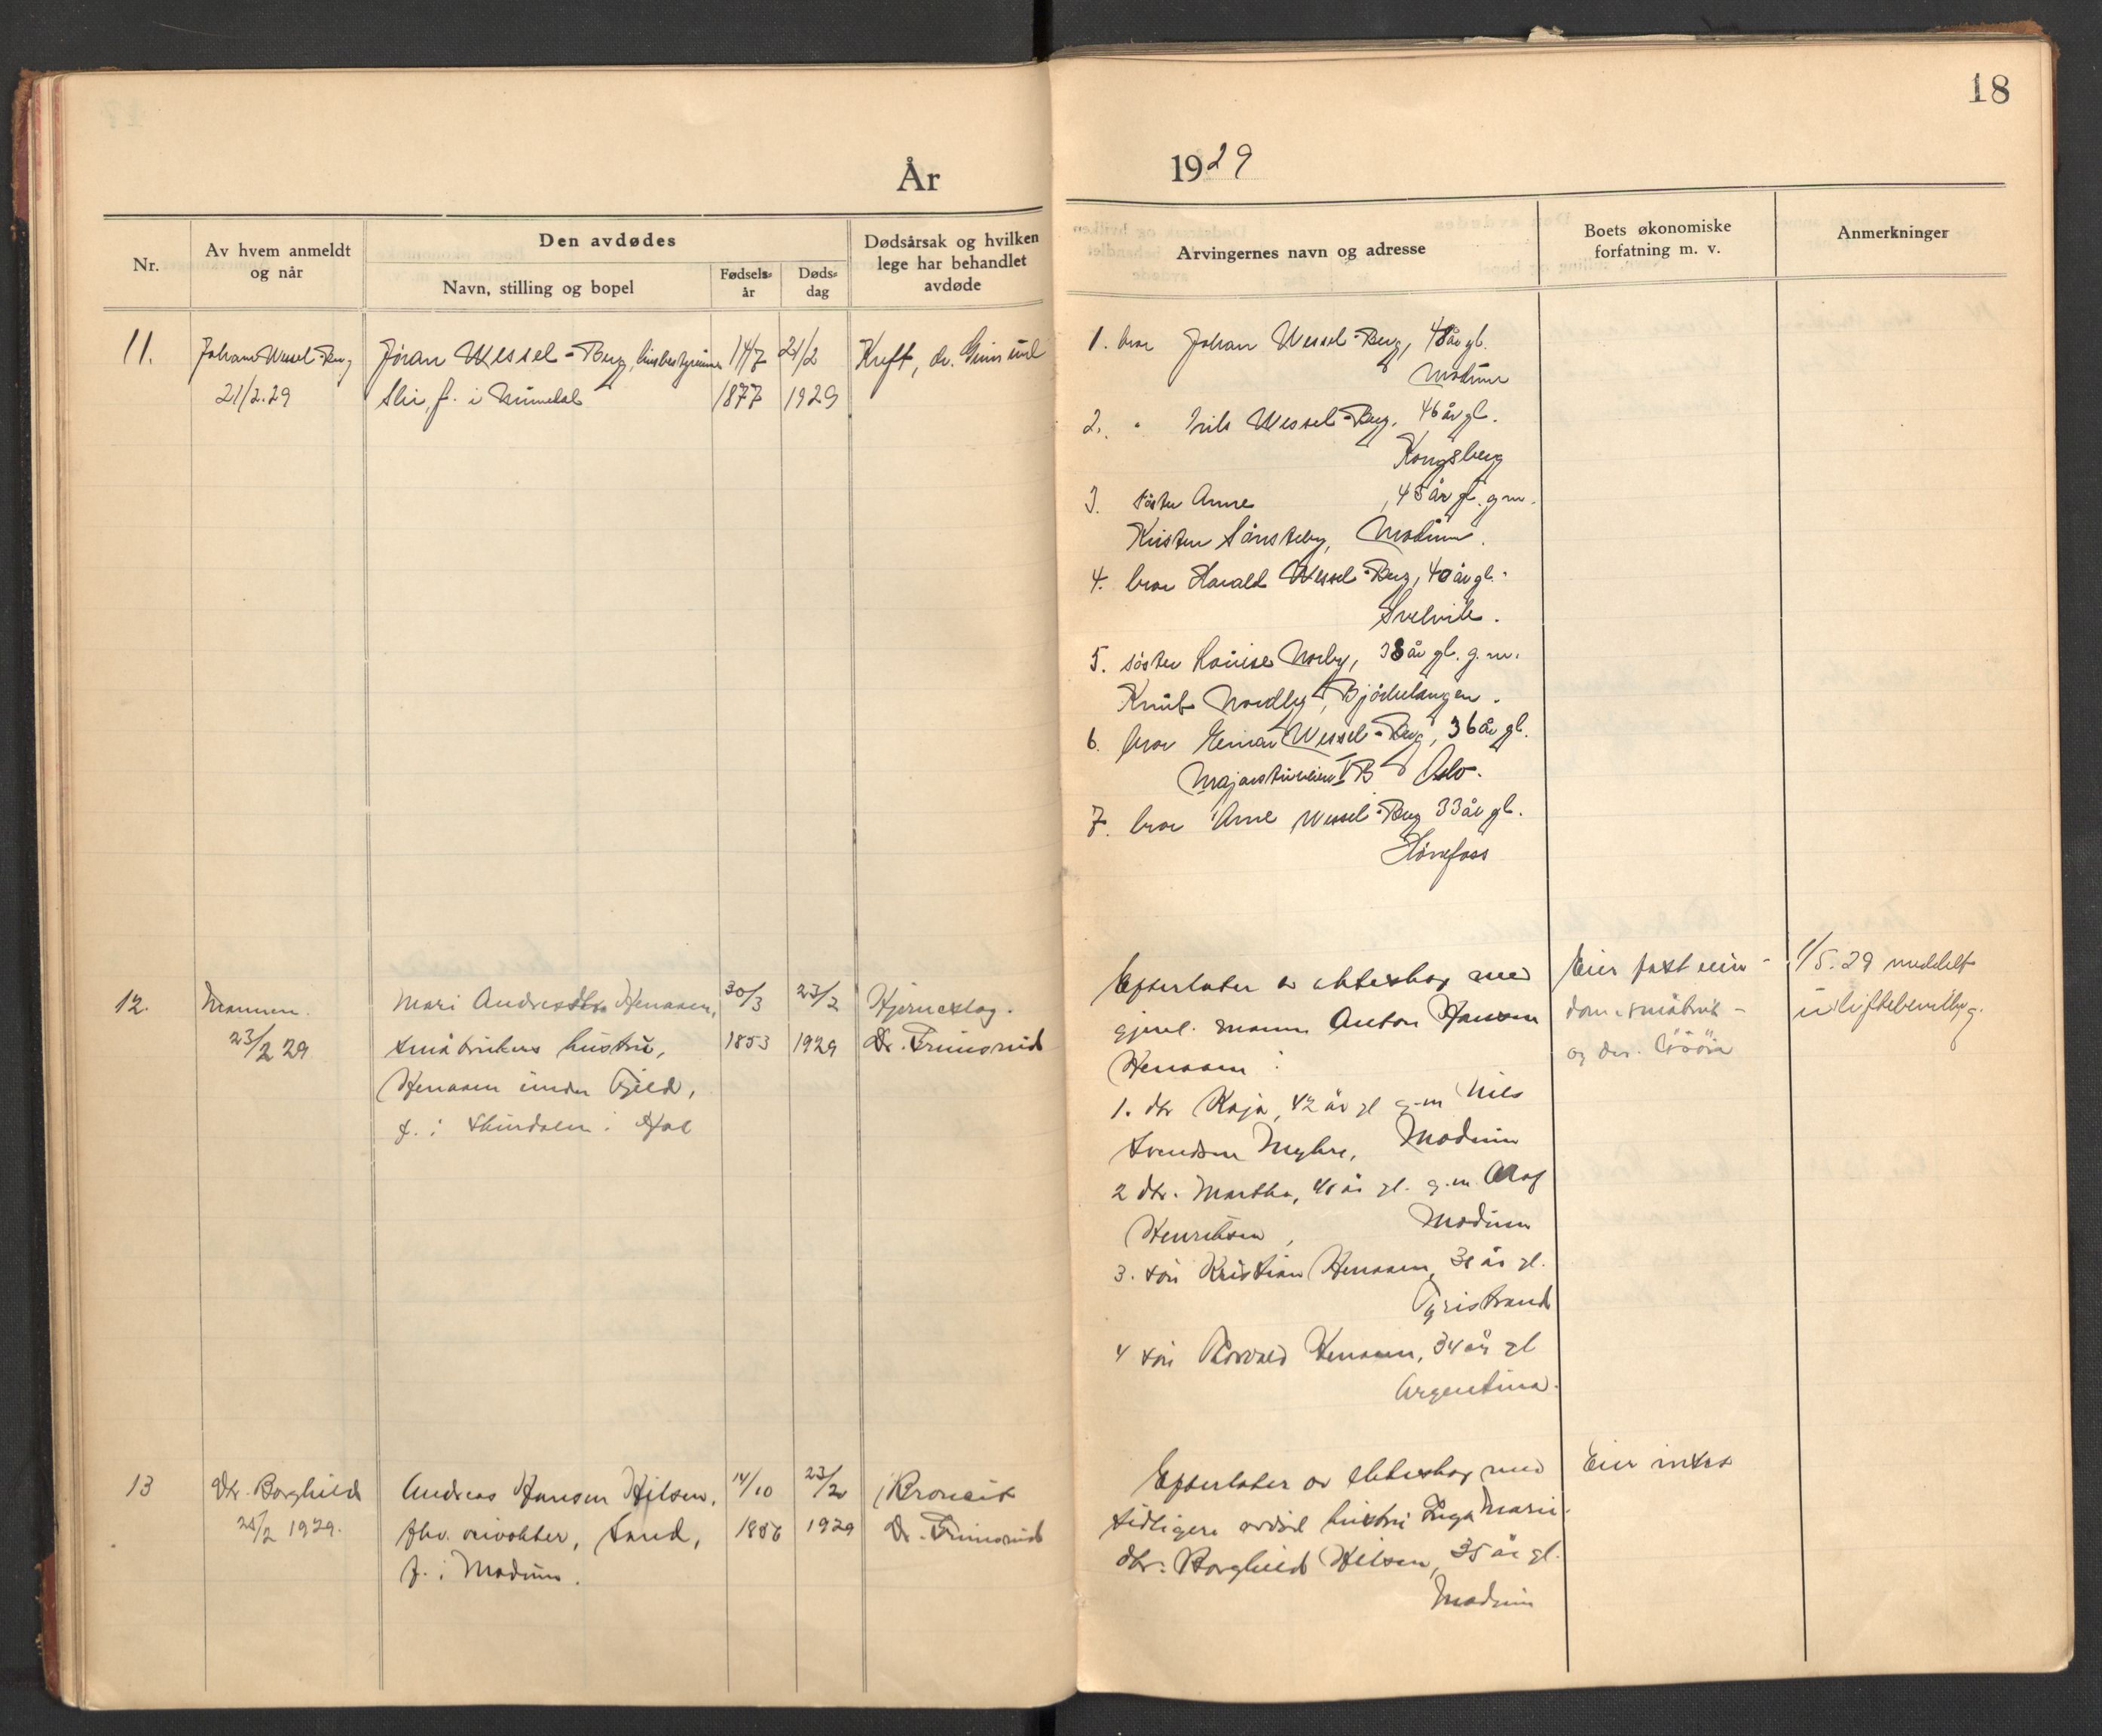 18
År 1929
Nr.
Av hvem anmeldt
og når
Den avdødes
Navn, stilling og bopel
Fødsels-
år
Døds-
dag
Dødsårsak og hvilken
lege har behandlet
avdøde
Arvingernes navn og adresse
Boets økonomiske
forfatning m. v.
Anmerkninger
11.
Johan Wessel-Berg
21/2.29
Jöran Wessel-Berg, husbestyrerinne
f. i Numedal
14/7
1877
21/2
1929
Kreft, dr.
1. bror Johan Wessel-Berg, 48 år gl.
Modum
2. " Wessel-Berg, 46 år gl.
Kongsberg
3. söster Anne , 45 år gl. g.m.
Kristen Sönsteby, Modum.
4. bror Harald Wessel-Berg, 40 år gl.
Svelvik.
5. söster Louise Norby, 38 år gl. g.m.
Knut Nordby, Bjørkelangen.
6. bror Einar Wessel-Berg, 36 år gl.
Majorstuveien V B Oslo.
7. bror Arne Wessel-Berg 33 år gl.
Hönefoss
12.
Mannen.
23/2 29
Mari Andreasdtr Henaaen,
småbrukers hustru,
Henaaen under Fjeld,
f. i Skurdalen i Hol
30/3
1853
23/2
1929
Hjerneslag.
Dr.
Efterlater av ekteskap med
gjenl. mann Anton Hansen
Henaaen:
1. dtr Kaja, 42 år gl g.m Nils
Svendsen Myhre, Modum
2 dtr. Martha, 40 år gl. g.m. Olaf
Henriksen, Modum
3. sön Kristian Henaaen, 38 år gl.
Tyristrand
4 sön Thorvald Henaaen, 34 år gl
Argentina.
Eier fast eien-
dom, småbruk -
og div. lösöre
1/5.29 meddelt
uskiftebevilling.
13
Dtr. Borghild
25/2 1929.
Andreas Hansen Hilsen,
fhv. Sand,
f. i Modum.
14/10
1856
23/2
1929
Bronkit
Dr.
Efterlater av ekteskap med
tidligere avdöd hustru Inga Marie:
dtr: Borghild Hilsen, 35 år gl.
Modum
Eier intet